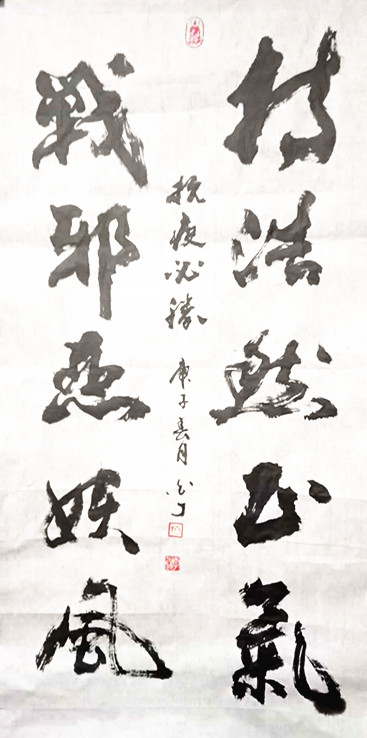 持浩然正氣
戰邪恶妖風
抗疫必勝 庚子春月